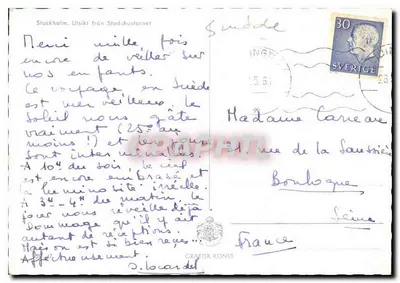 Stockholm. Utsikt från Stadshustornet
Suède
Merci mille fois
encore de veiller sur
nos enfants.
Ce voyage en Suède
est merveilleux. Le
soleil nous gâte
vraiment (25° au
moins !) et les
sont interminables.
A 10h du soir le ciel
est encore embrasé et
a luminosité irréelle.
A 3h - 4h du matin le
jour nous réveille déjà
Dommage qu'il y ait
autant de réceptions.
Mais on est si bien reçus...
Affectueusement.
30
SVERIGE
Madame Carreau
rue de la Saussière
Boulogne
Seine
France
GRAFISK KONST